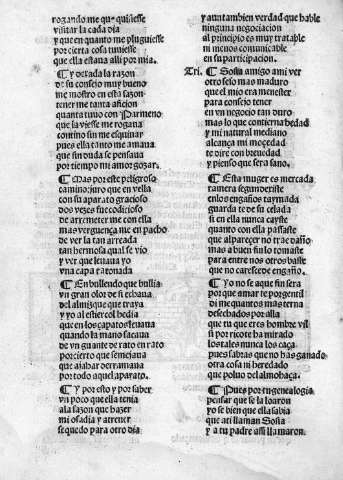 rogando me q̃ quisiesse
visitar la cada dia
y que en quanto me pluguiesse
por cierta cosa tuuiesse
que ella estaua alli por mia.
¶ Y de toda la razon
de su consejo muy bueno
me mostro en esta sazon
tener me tanta aficion
quanta tuuo con Parmeno
que la viesse me rogaua
contino sin me esquiuar
pues ella tanto me amaua
que sin duda se pensaua
por tiempo mi amor gozar.
¶ Mas por este peligroso
camino: juro que en vella
con su aparato gracioso
dos vezes fue codicioso
de arremeter me con ella
mas verguença me en pacho
de ver la tan arreada
tan hermosa qual se vio
y ver que leuaua yo
vna capa ratonada
¶ En bullendo que bullia
vn gran olor de si echaua
del almizque que traya
y yo al estiercol hedia
que en los çapatos leuaua
quando la mano sacaua
de vn guante de rato en rato
por cierto que semejaua
que ajabar derramaua
por todo aquel aparato.
¶ Y por esto y por saber
vn poco que ella tenia
a la sazon que hazer
mi osadia y atreuer
se quedo para otro dia
y aun tambien verdad que hable
ninguna negociacion
al principio es muy tratable
ni menos comunicable
en su participacion.
Tri. ¶ Sosia amigo a mi ver
otro seso mas maduro
que el mio era menester
para consejo tener
en vn negocio tan duro
mas lo que contierna bedad
y mi natural mediano
alcança mi moçedad
te dire con breuedad
y pienso que sera sano.
¶ Esta muger es mercada
ramera segun deziste
en los engaños taymada
guarda te de su celada
si en ella nunca cayste
quanto con ella passaste
que al parecer no trae daño
mas a buen fin lo tomaste
para entre nos otros baste
que no caresce de engaño.
¶ Yo no se a que fin sera
por que amar te por gentil
di me quantos mas terna
desechados por alla
que tu que eres hombre vil
si por rico te ha mirado
los tales nunca los caça
pues sabras que no has ganado
otra cosa ni heredado
que poluo del almohaça.
¶ Pues por tu genealogia
pensar que se la loaron
yo se bien que ella sabia
que a ti llaman Sosia
y a tu padre assi llamaron.